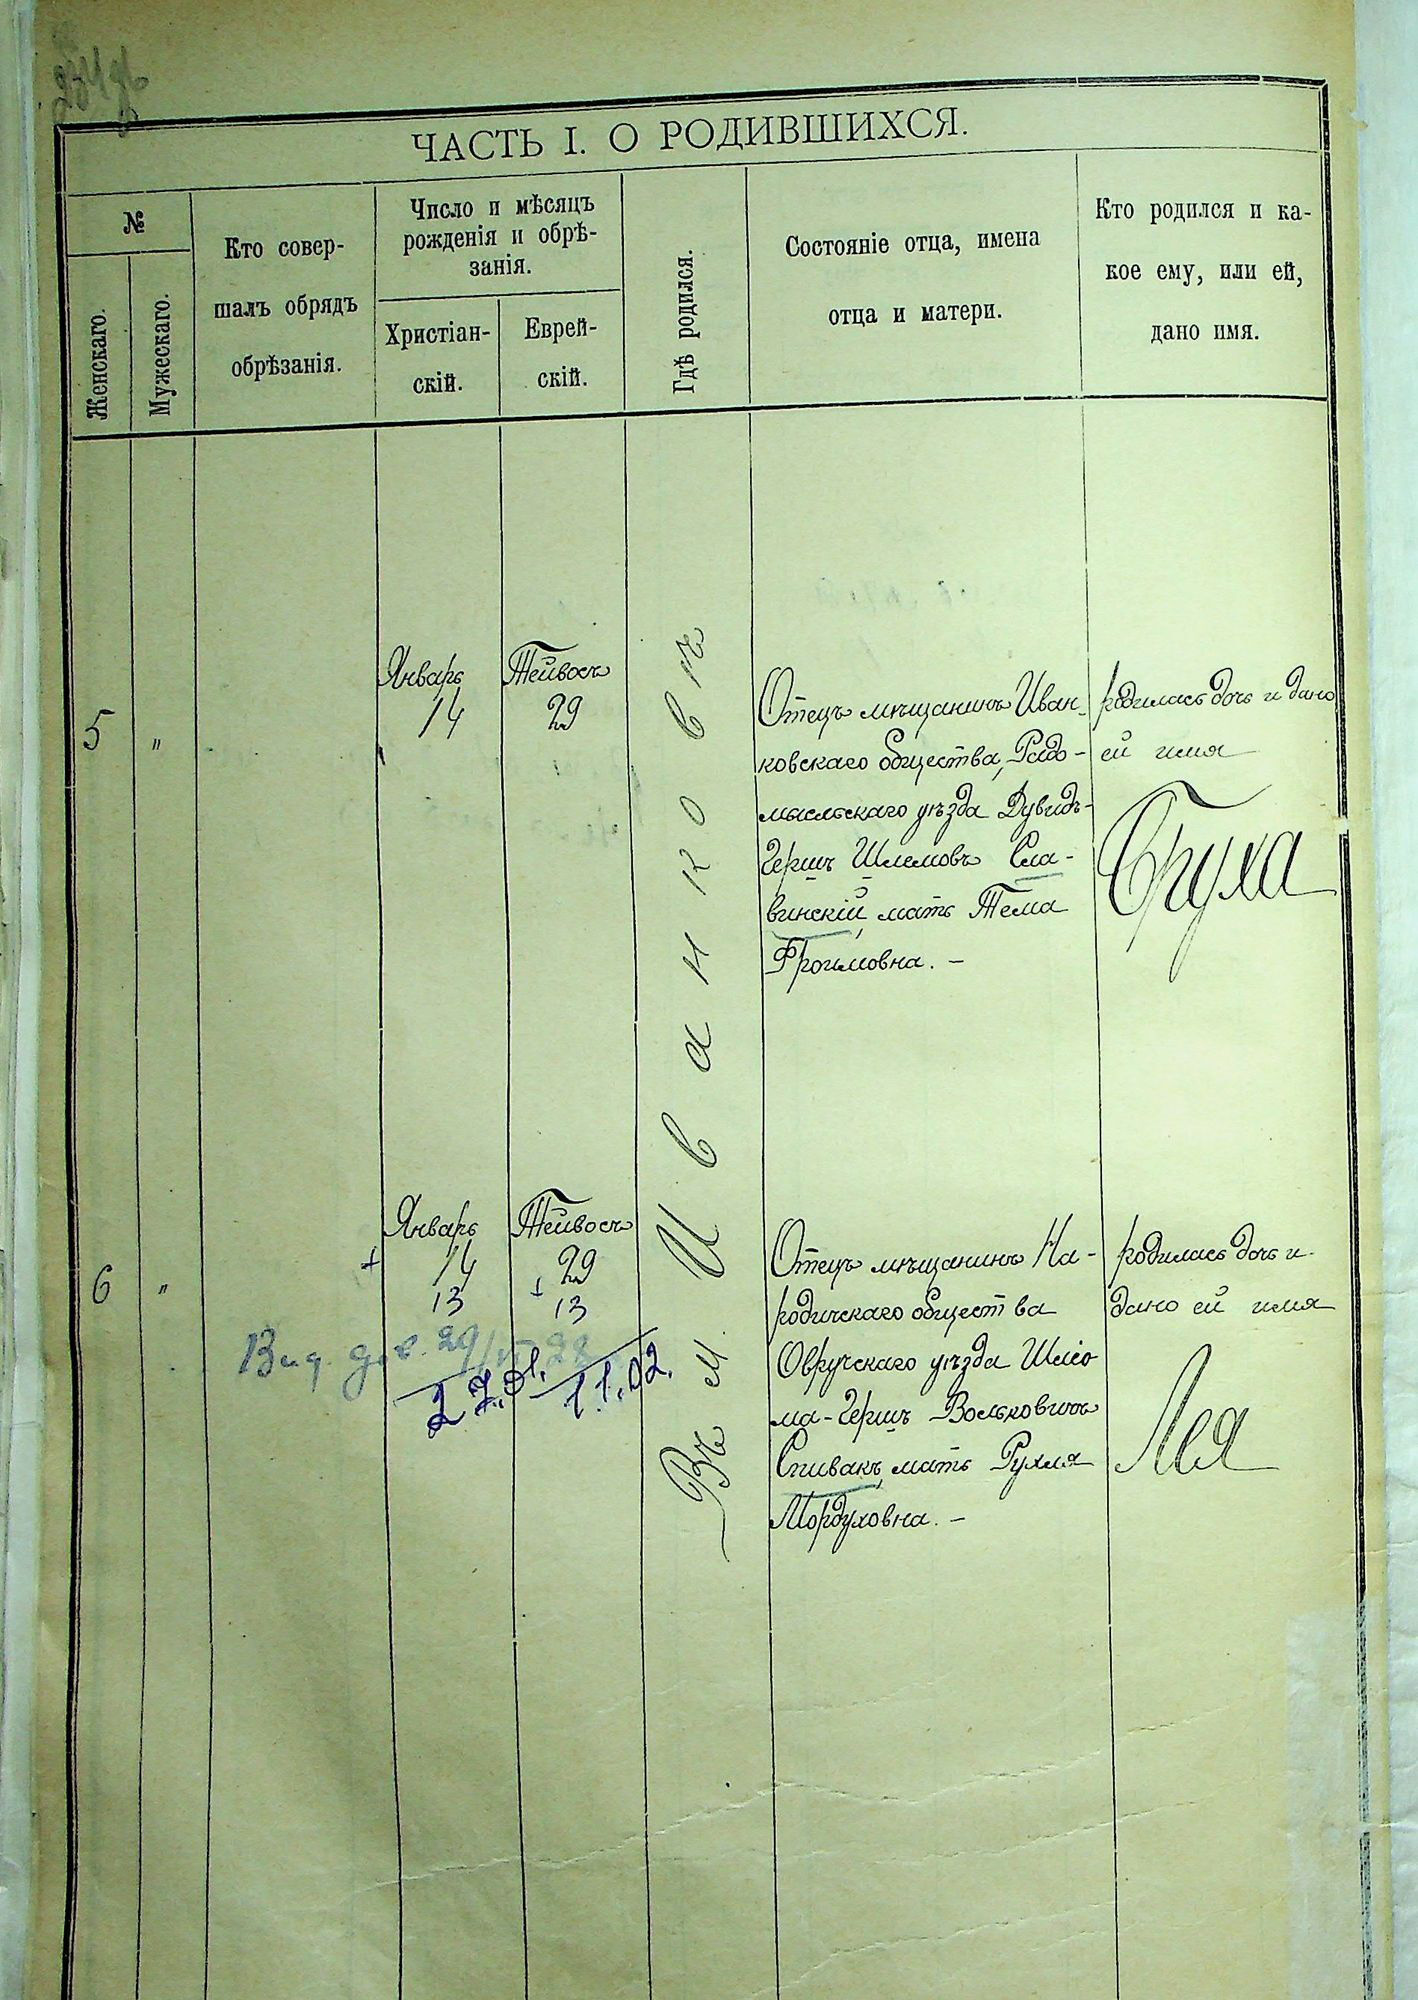 ЧАСТЬ I. О РОДИВШИХСЯ.
№
Женскаго.
Мужескаго.
Кто совер-
шалъ обрядъ
обрѣзанія.
Число и мѣсяцъ
рожденія и обрѣ-
занія.
Христіан-
скій.
Еврей-
скій.
Гдѣ родился.
Состояніе отца, имена
отца и матери.
Кто родился и ка-
кое ему, или ей,
дано имя.
5
"
Январь
14
Тейвосъ
29
Въ м. Иванковѣ
Отецъ мѣщанинъ Иван-
ковскаго общества, Радо-
мысльскаго уѣзда Дувидъ-
Гершъ Шлемовъ Сла-
винскій, мать Тема
Фроимовна. -
родилась дочь и дано
ей имя
Бруха
6
"
Январь
14
13
Тейвосъ
29
13
27.01.
11.02.
Отецъ мѣщанинъ На-
родичскаго общества
Овручскаго уѣзда Шлiо
ма-Гершъ Вольковичъ
Спивакъ, мать Рухля
Мордуховна. -
родилась дочь и
дано ей имя
Лея